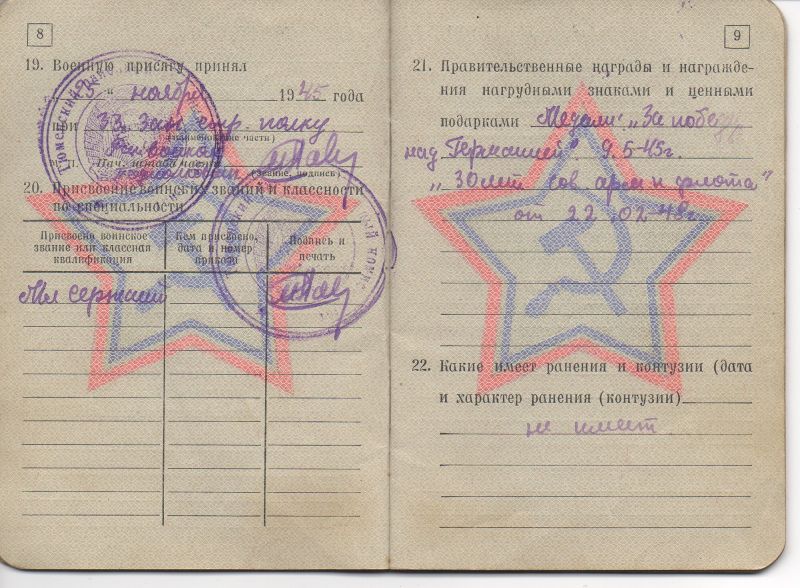 8
19. Военную присягу принял
„ ноября 1945 года
при 33 Зап. стр. полку
(наименование части)
М. П. Нач. штаба части
(звание, подпись)
20. Присвоение воинских званий и классности
по специальности
Присвоено воинское звание или классная квалификация
Кем присвоено, дата и номер приказа
Подпись и печать
Мл сержант
9
21. Правительственные награды и награжде-
ния нагрудными знаками и ценными
подарками Медали: „За победу
над Германией" 9.5-45г.
„30 лет сов. арм и флота"
от 22.02-48г.
22. Какие имеет ранения и контузии (дата
и характер ранения (контузии)
не имеет